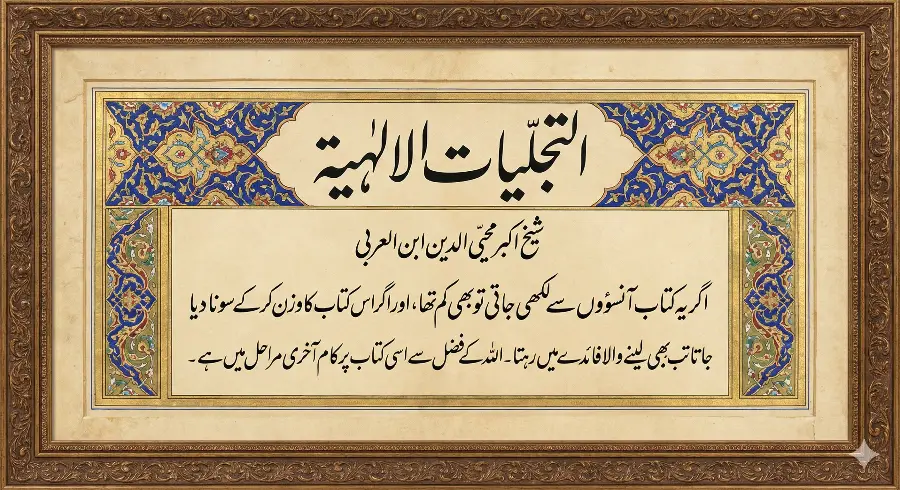 التجلّیات الالٰہیۃ
شیخ اکبر محیّ الدین ابن العربی
اگر یہ کتاب آنسوؤں سے لکھی جاتی تو بھی کم تھا، اور اگر اس کتاب کا وزن کر کے سونا دیا
جاتا تب بھی لینے والا فائدے میں رہتا۔ اللہ کے فضل سے اسی کتاب پر کام آخری مراحل میں ہے۔